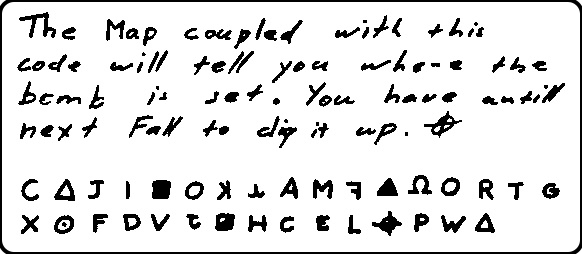 The Map coupled with this
code will tell you where the
bomb is set. You have untill
next Fall to dig it up. ⌖
C Δ J I ■ O ʞ ʇ A M ꟻ ▲ Ω O R T G
X ⊙ F D V ꞇ ▣ H C E L ⌖ P W Δ